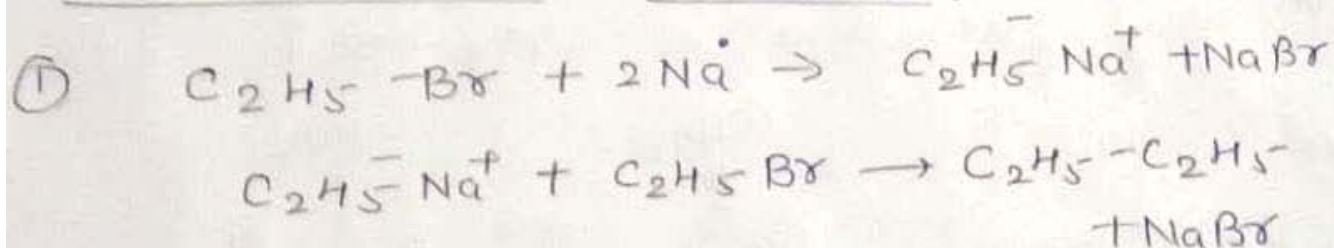 ① C₂H₅-Br + 2Na• → C₂H₅⁻ Na⁺ + NaBr
C₂H₅⁻ Na⁺ + C₂H₅Br → C₂H₅-C₂H₅
+ NaBr